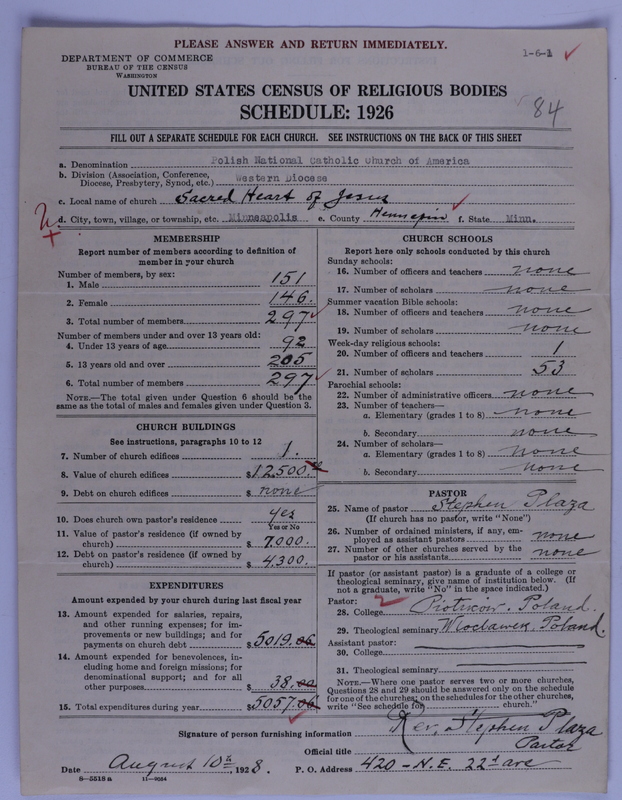 PLEASE ANSWER AND RETURN IMMEDIATELY.
1-6-1
DEPARTMENT OF COMMERCE
BUREAU OF THE CENSUS
WASHINGTON
UNITED STATES CENSUS OF RELIGIOUS BODIES
SCHEDULE: 1926
84
FILL OUT A SEPARATE SCHEDULE FOR EACH CHURCH. SEE INSTRUCTIONS ON THE BACK OF THIS SHEET
a. Denomination Polish National Catholic Church of America
b. Division (Association, Conference, Diocese, Presbytery, Synod, etc.) Western Diocese
c. Local name of church Sacred Heart of Jesus
d. City, town, village, or township, etc. Minneapolis e. County Hennepin f. State Minn.
MEMBERSHIP
Report number of members according to definition of
member in your church
Number of members, by sex:
1. Male 151
2. Female 146.
3. Total number of members 297
Number of members under and over 13 years old:
4. Under 13 years of age 92
5. 13 years old and over 205
6. Total number of members 297
NOTE.—The total given under Question 6 should be the
same as the total of males and females given under Question 3.
CHURCH BUILDINGS
See instructions, paragraphs 10 to 12
7. Number of church edifices 1.
8. Value of church edifices $12,500
9. Debt on church edifices $ none
10. Does church own pastor's residence yes
Yes or No
11. Value of pastor's residence (if owned by
church) $ 7,000.
12. Debt on pastor's residence (if owned by
church) $ 4,300.
EXPENDITURES
Amount expended by your church during last fiscal year
13. Amount expended for salaries, repairs,
and other running expenses; for im-
provements or new buildings; and for
payments on church debt $ 5019.06
14. Amount expended for benevolences, in-
cluding home and foreign missions; for
denominational support; and for all
other purposes $ 38.00
15. Total expenditures during year $ 5057.06
CHURCH SCHOOLS
Report here only schools conducted by this church
Sunday schools:
16. Number of officers and teachers none
17. Number of scholars none
Summer vacation Bible schools:
18. Number of officers and teachers none
19. Number of scholars none
Week-day religious schools:
20. Number of officers and teachers 1
21. Number of scholars 53
Parochial schools:
22. Number of administrative officers none
23. Number of teachers—
a. Elementary (grades 1 to 8) none
b. Secondary none
24. Number of scholars—
a. Elementary (grades 1 to 8) none
b. Secondary none
PASTOR
25. Name of pastor Stephen Plaza
(If church has no pastor, write "None")
26. Number of ordained ministers, if any, em-
ployed as assistant pastors none
27. Number of other churches served by the
pastor or his assistants none
If pastor (or assistant pastor) is a graduate of a college or
theological seminary, give name of institution below. (If
not a graduate, write "No" in the space indicated.)
Pastor:
28. College Piotrkow. Poland.
29. Theological seminary Wloclawek, Poland.
Assistant pastor:
30. College
31. Theological seminary
NOTE.—Where one pastor serves two or more churches,
Questions 28 and 29 should be answered only on the schedule
for one of the churches; on the schedules for the other churches,
write "See schedule for church."
Signature of person furnishing information Rev. Stephen Plaza
Official title Pastor
Date August 10th, 1928. P. O. Address 420 - N.E. 22d ave
8—5518 a 11—9054